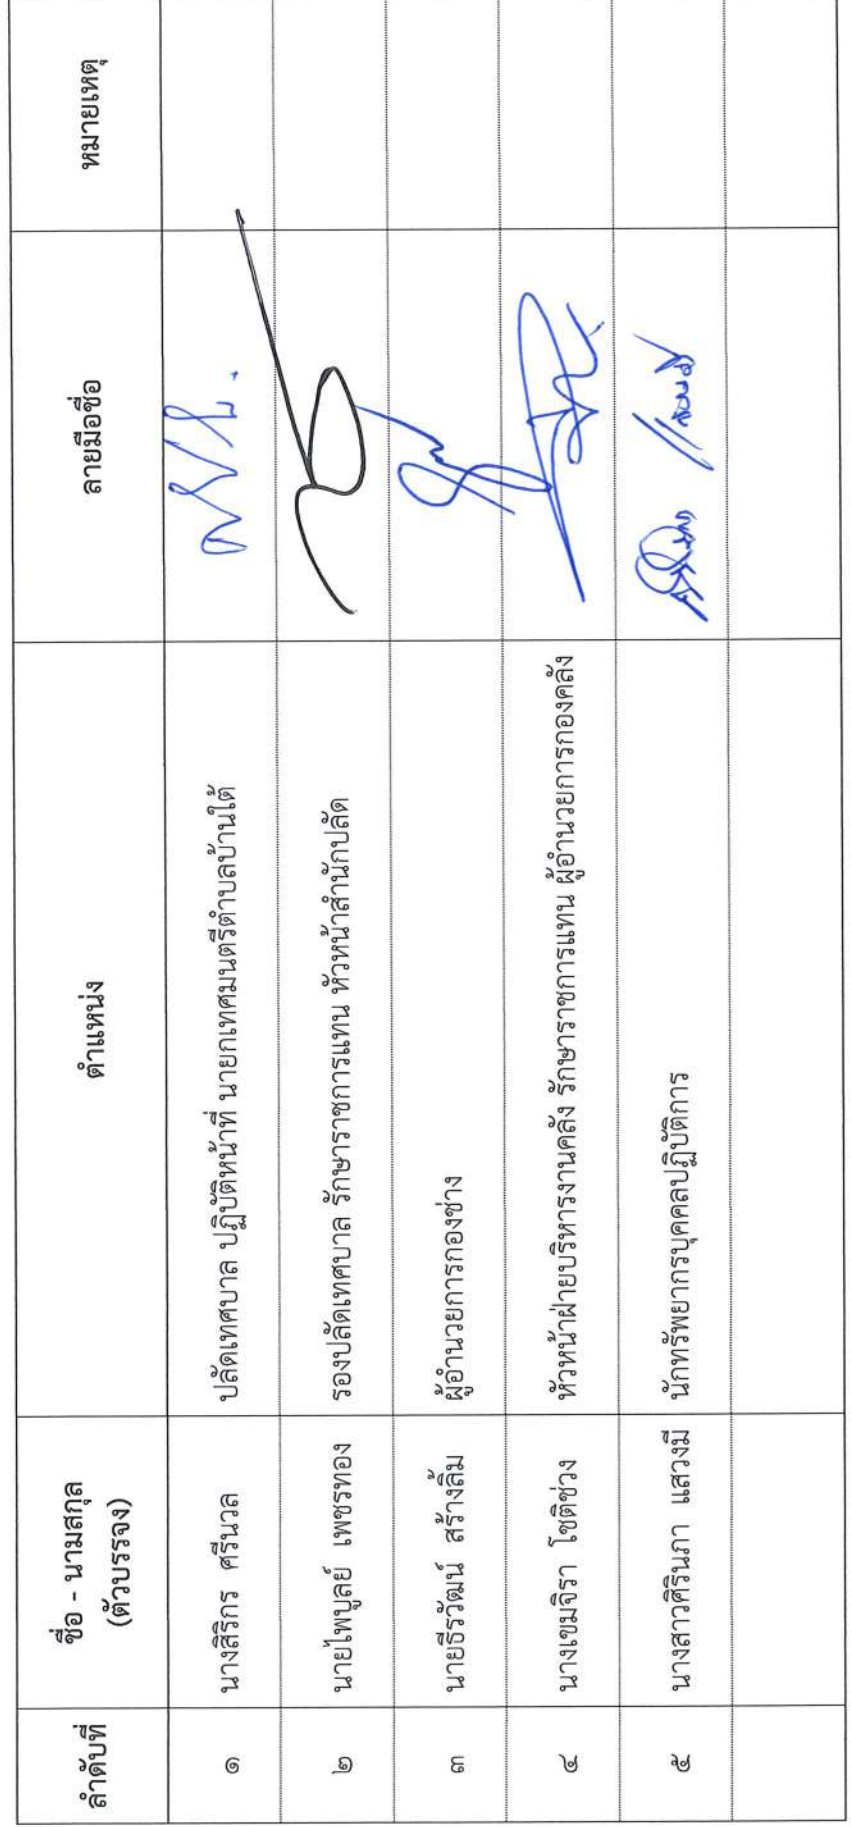 ลำดับที่ ชื่อ - นามสกุล ตำแหน่ง ลายมือชื่อ หมายเหตุ
(ตัวบรรจง)
๑ นางสิริกร ศรีนวล ปลัดเทศบาล ปฏิบัติหน้าที่ นายกเทศมนตรีตำบลบ้านใต้
๒ นายไพบูลย์ เพชรทอง รองปลัดเทศบาล รักษาราชการแทน หัวหน้าสำนักปลัด
๓ นายธีรวัฒน์ สร้างลิ้ม ผู้อำนวยการกองช่าง
๔ นางเขมจิรา โชติช่วง หัวหน้าฝ่ายบริหารงานคลัง รักษาราชการแทน ผู้อำนวยการกองคลัง
๕ นางสาวศิรินภา แสวงมี นักทรัพยากรบุคคลปฏิบัติการ